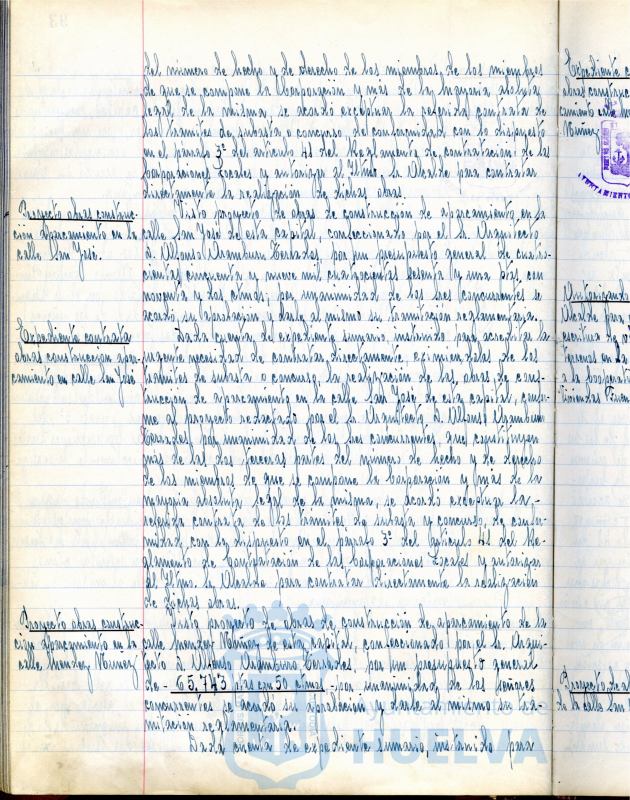 del número de hecho y de derecho de los miembros de los miembros
de que se compone la Corporación y más de la mayoría absoluta
legal de la misma, se acordó exceptuar la referida contrata de
los trámites de subasta o concurso, de conformidad con lo dispuesto
en el párrafo 3º del artículo 41 del Reglamento de Contratación de las
Corporaciones Locales y autorizar al Iltmo. Sr. Alcalde para contratar
directamente la realización de dichas obras.
Proyecto obras construc-
ción aparcamiento en la
calle San José.
Visto proyecto de obras de construcción de aparcamiento en la
calle San José de esta capital, confeccionado por el Sr. Arquitecto
D. Alfonso Aramburu Terrades, por un presupuesto general de cuatro-
cientas cincuenta y nueve mil cuatrocientas sesenta y una ptas. con
noventa y los ctmos; por unanimidad de los tres concurrentes se
acordó su aprobación y darle al mismo su tramitación reglamentaria.
Expediente contrata
obras construcción apar-
camiento en calle San José
Dada cuenta del expediente sumario, instruido para acreditar la
urgente necesidad de contratar directamente, eximiendolas de los
trámites de subasta o concurso, la realización de las obras de cons-
trucción de aparcamiento en la calle San José de esta capital, confor-
me al proyecto redactado por el Sr. Arquitecto D. Alfonso Aramburu
Terrades; por unanimidad de los tres concurrentes, que constituyen
más de las dos terceras partes del número de hecho y de derecho
de los miembros de que se compone la Corporación y más de la
mayoría absoluta legal de la misma, se acordó exceptuar la
referida contrata de los trámites de subasta y concurso, de confor-
midad con lo dispuesto en el párrafo 3º del artículo 41 del Re-
glamento de Contratación de las Corporaciones Locales y autorizar
al Iltmo. Sr. Alcalde para contratar directamente la realización
de dichas obras.
Proyecto obras construc-
ción aparcamiento en la
calle Mendez Nuñez
Visto proyecto de obras de construcción de aparcamiento de la
calle Mendez Nuñez de esta capital, confeccionado por el Sr. Arqui-
tecto D. Alfonso Aramburu Terrades por un presupuesto general
de - 65.743 ptas con 50 ctmos - por unanimidad de los señores
concurrentes se acordó su aprobación y darle al mismo su tra-
mitación reglamentaria.
Dada cuenta de expediente sumario, instruido para
Ayuntamiento de
HUELVA